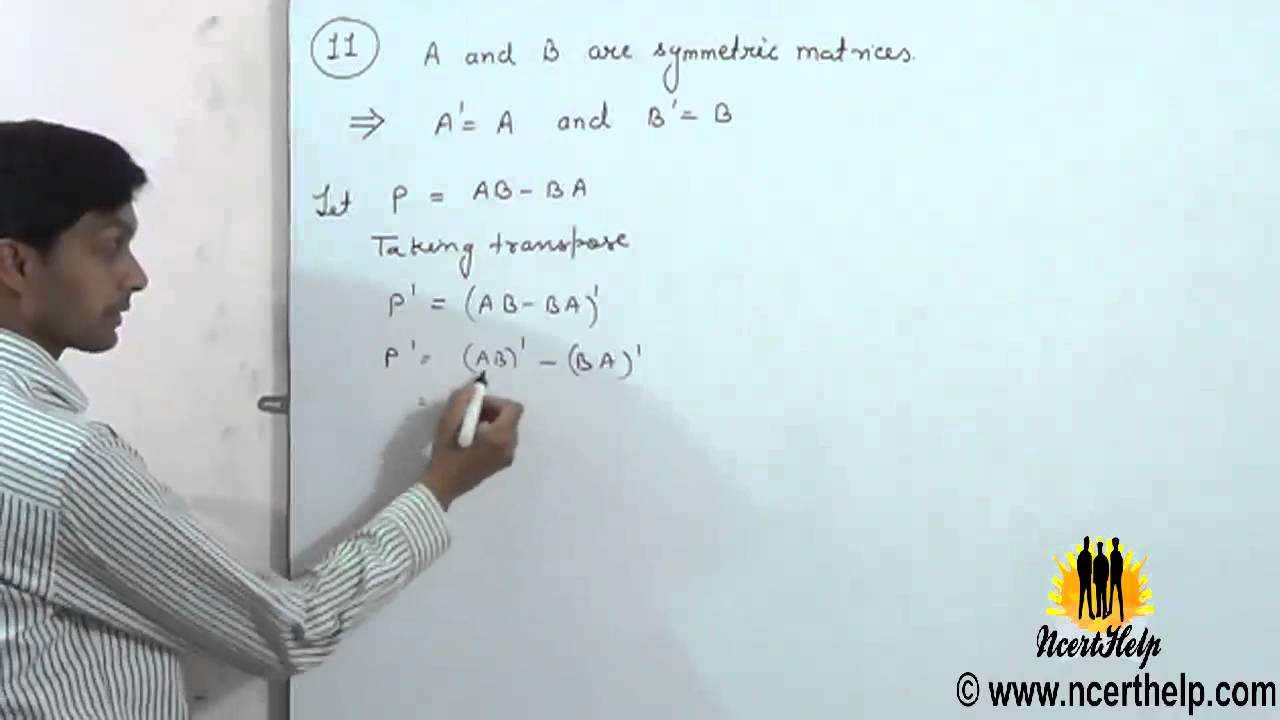 11 A and B are symmetric matrices.
⇒ A' = A and B' = B
Let P = AB - BA
Taking transpose
P' = (AB - BA)'
P' = (AB)' - (BA)'
=
NcertHelp
© www.ncerthelp.com